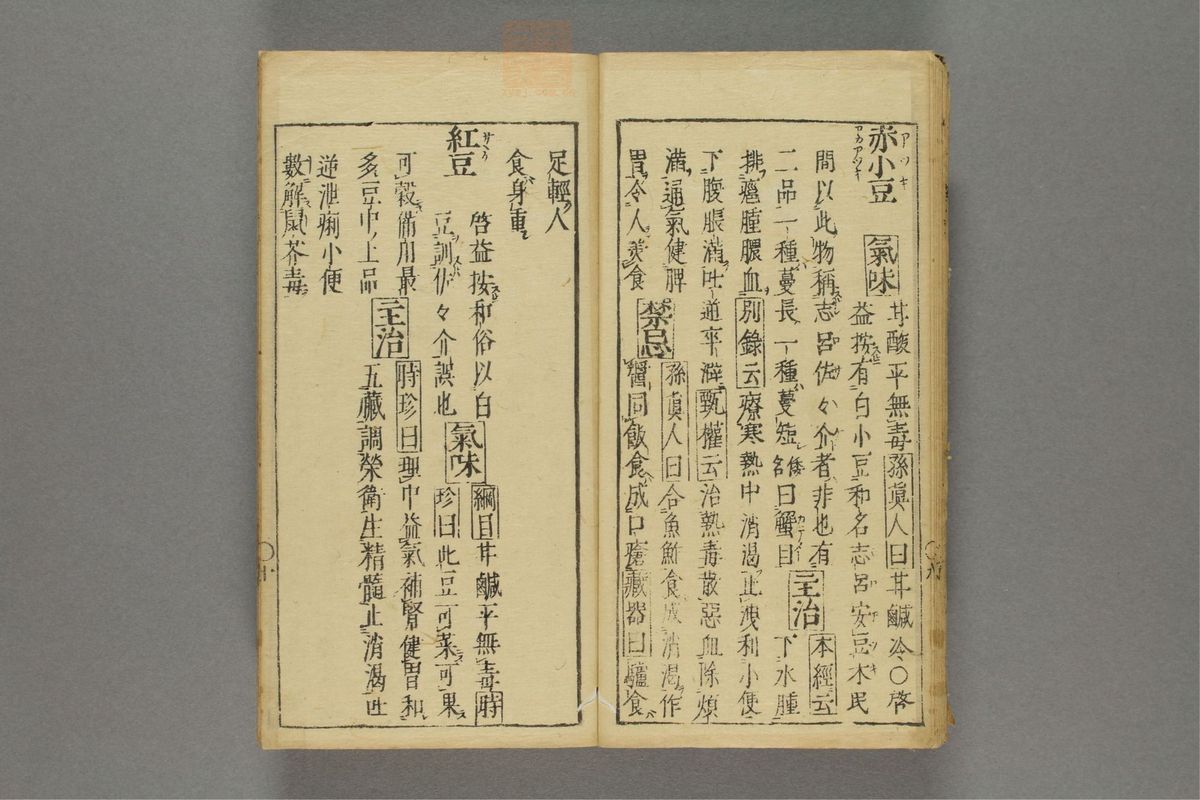 赤小豆 アツキ アカアツキ 氣味
甘酸平無毒孫眞人曰甘鹹冷○啓
益按有白小豆和名志呂安豆木民
間以此物稱志呂佐々介者非也有
二品一種蔓長一種蔓短倭名曰蟹目 主治 本經云下水腫
排癰腫膿血別錄云療寒熱中消渴止洩利小便
下腹脹滿吐逆卒澼甄權云治熱毒散惡血除煩
滿通氣健脾 孫眞人曰合魚鮓食成消渴作
胃令人美食 禁忌 醬同飯食成口瘡藏器曰驢食
足輕人
食身重
紅豆
啓益按和俗以白
豆訓佐々介誤也 氣味 綱目甘鹹平無毒時
珍曰此豆可菜可果
可穀備用最
多豆中ノ上品 主治 時珍曰理中益氣補腎健胃和
五藏調榮衛生精髓止消渴吐
逆泄痢小便
數解鼠莽毒